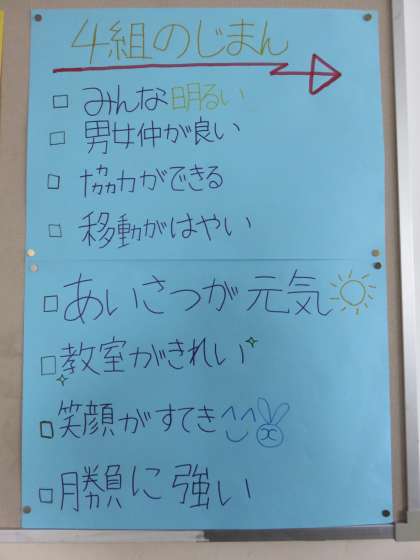 4組のじまん
□ みんな明るい
□ 男女仲が良い
□ 協力ができる
□ 移動がはやい
□ あいさつが元気
□ 教室がきれい
□ 笑顔がすてき
□ 勝負に強い